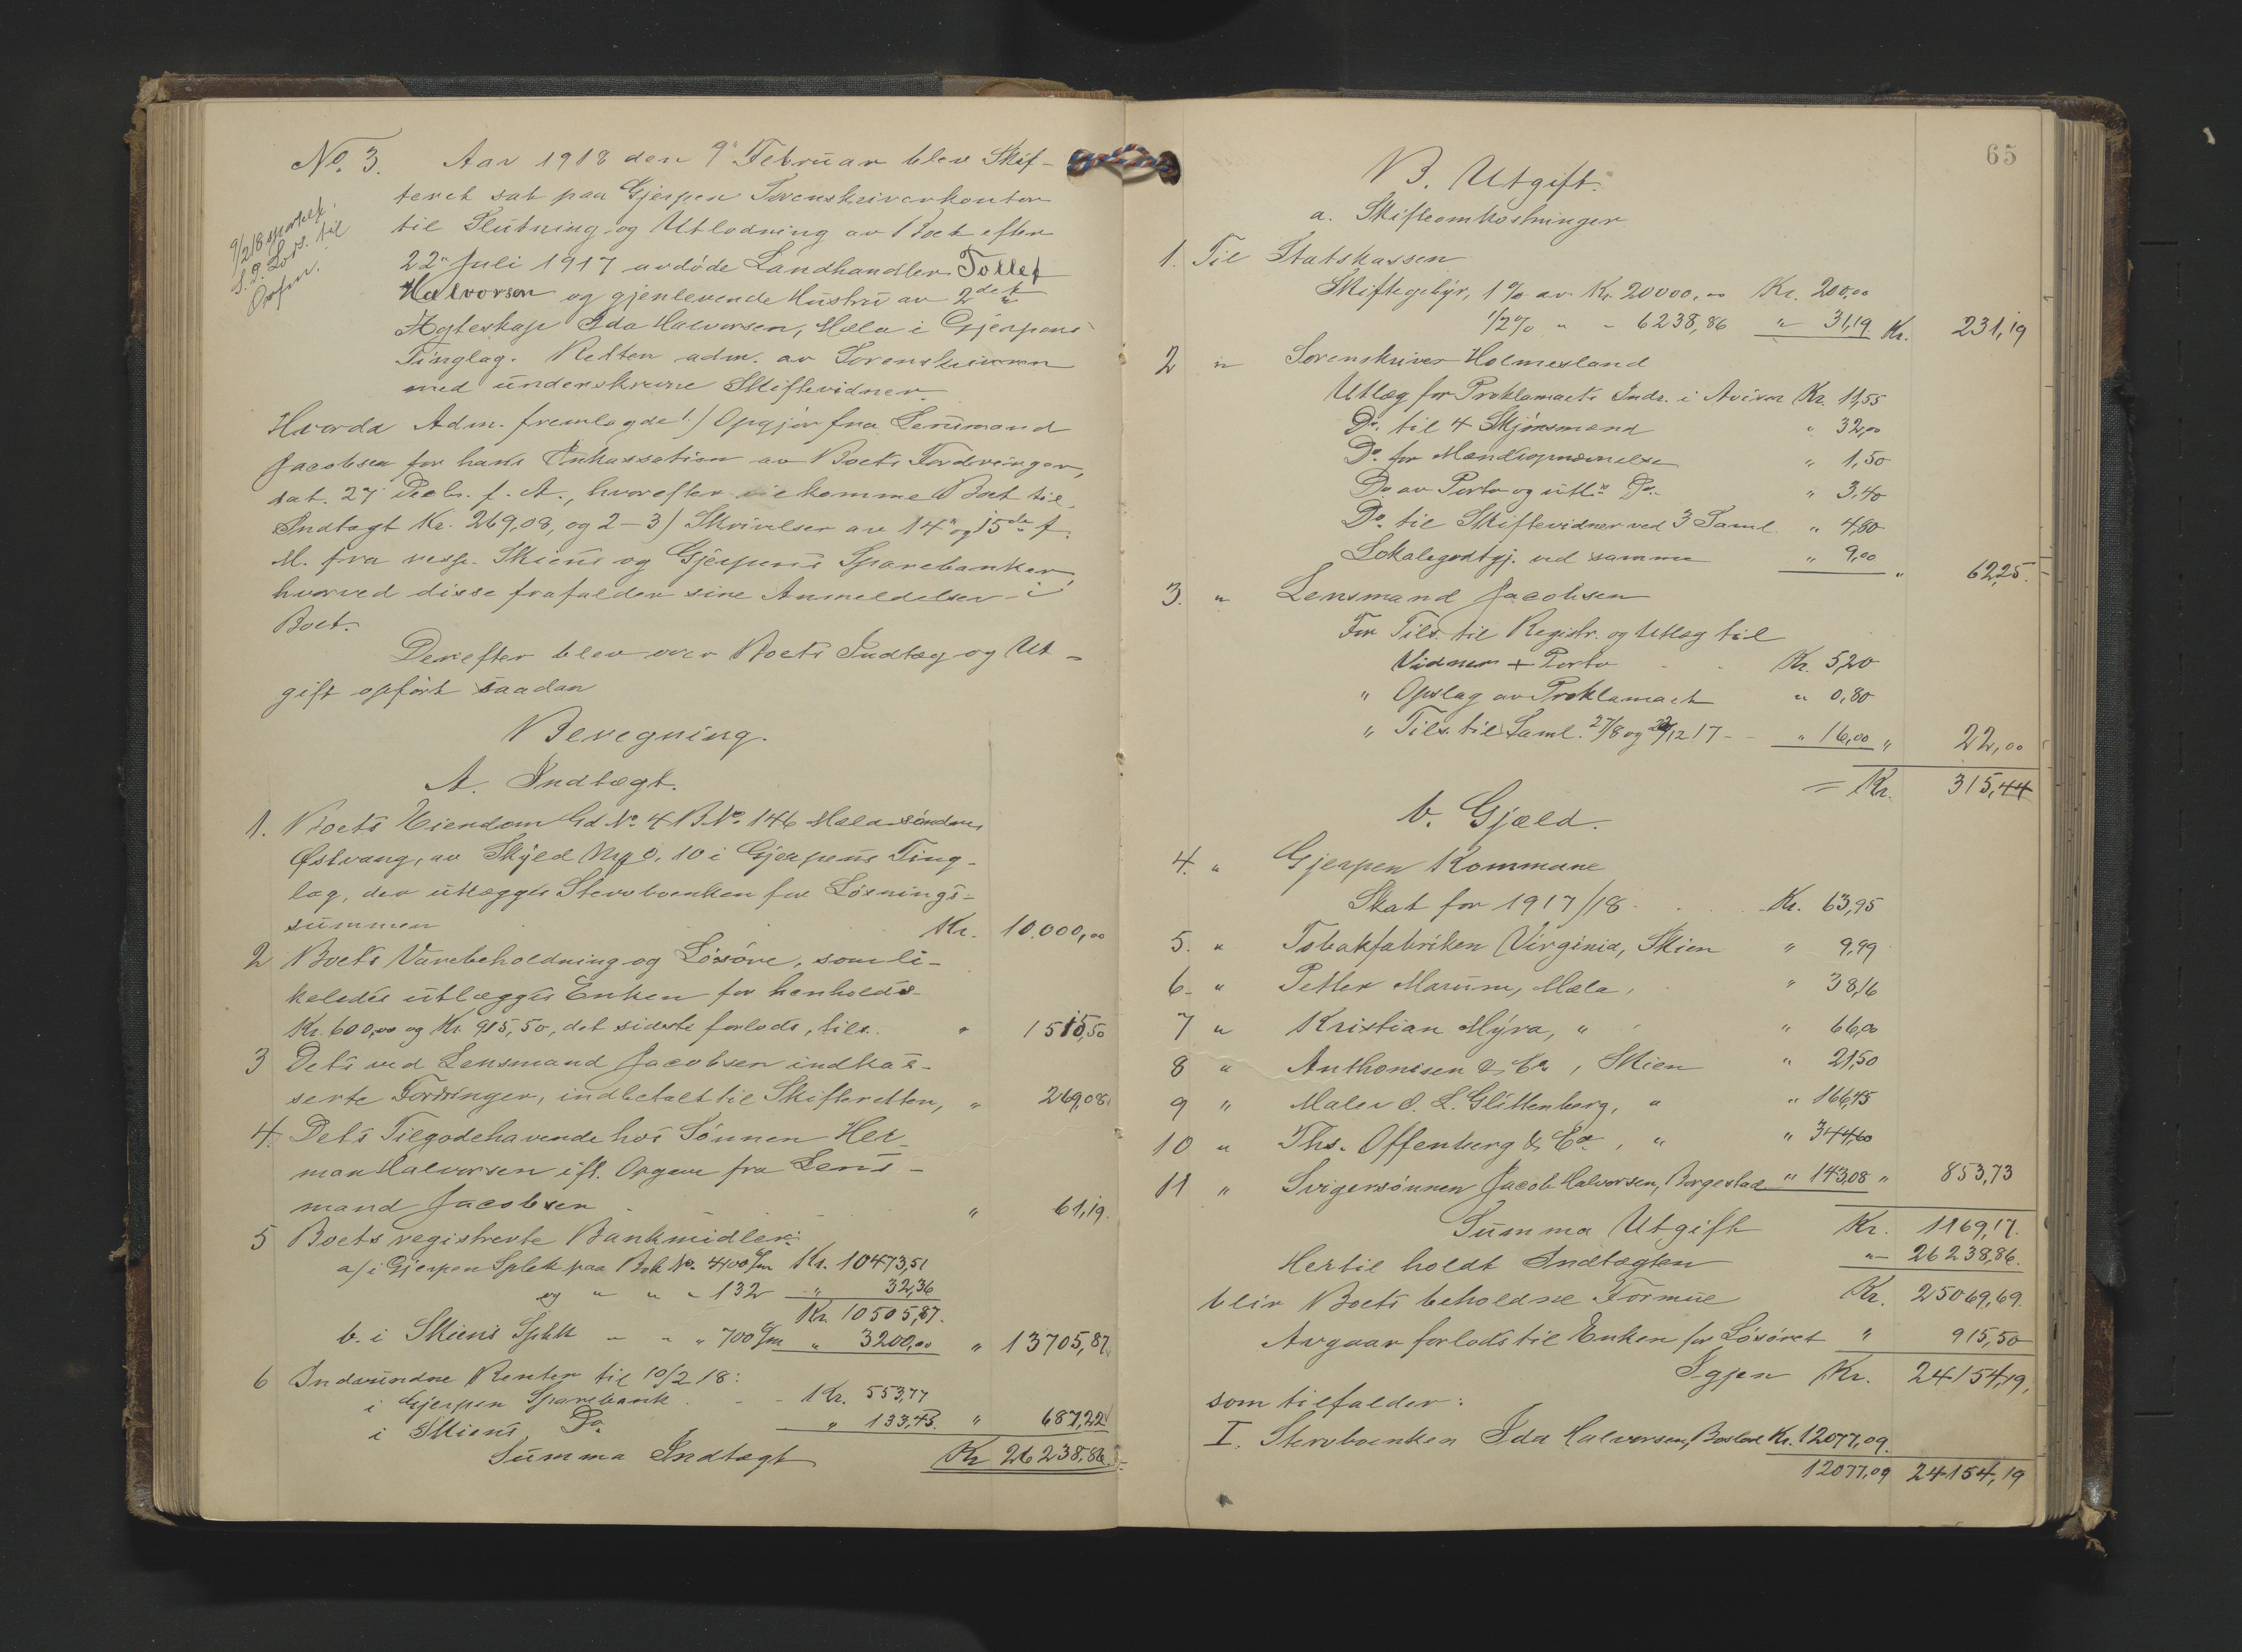 No. 3. Aar 1918 den 9' Februar blev Skif-
teret sat paa Gjerpen Sorenskriverkontor
til Slutning og Utlodning av Boet efter
22' Juli 1917 avdøde Landhandler Tollef
Halvorsen og gjenlevende Hustru av 2det
Ægteskap Ida Halvorsen, Mæla i Gjerpens
Tinglag. Retten adm. av Sorenskriveren
med underskrevne Skiftevidner.
9/2 18
Hvorda Adm. fremlagde 1.) Opgjør fra Lensmand
Jacobsen for hans Inkassation av Boets Fordringer,
dat. 27 Decbr. f. A., hvorefter Boet til
Indtægt Kr. 269,08, og 2-3) Skrivelser av 14' og 15de f.
M. fra resp. Skiens og Gjerpens Sparebanker,
hvorved disse frafalder sine Anmeldelser i
Boet.
Derefter blev over Boets Indtæg og Ut-
gift opført saadan
Beregning.
A. Indtægt.
1. Boets Eiendom Gd. No. 4 B.No. 146 Mæla søndre
Østvang, av Skyld Mrk 0,10 i Gjerpens Ting-
lag, der utlægges Stervboenken for Løsnings-
summen Kr. 10.000,00
2 Boets Varebeholdning og Løsøre, som li-
keledes utlægges Enken for henholds-
Kr. 600,00 og Kr. 915,50, det sidste forlods, tils. " 1515,50
3 Dets ved Lensmand Jacobsen indkas-
serte Fordringer, indbetalt til Skifteretten, " 269,08
4. Dets Tilgodehavende hos Sønnen Her-
man Halvorsen ifl. Opgave fra Lens-
mand Jacobsen " 61,19.
5 Boets registrerte Bankmidler:
a) i Gjerpen Spbk paa Bok No. 4400 Kr. 10473,51
og " " " 132 " 32,36
Kr. 10505,87.
b. i Skiens Spbk " " " 700 " 3200,00 " 13705,87
6 Indvundne Renter til 10/2 18:
i Gjerpen Sparebank Kr. 553,77
i Skiens Do. " 133,45 " 687,22
Summa Indtægt Kr 26238,86
65
B. Utgift.
a. Skifteomkostninger
1. Til Statskassen
Skiftegebyr, 1 % av Kr. 20000,00 Kr. 200,00
1/2 % " - 6238,86 " 31,19 Kr. 231,19
2 " Sorenskriver Holmesland
Utlæg for Proklamaets Indr. i Aviser Kr. 11,55
Do. til 4 Skjønsmænd " 32,00
Do. for Mændsopnævnelse " 1,50
Do av Porto og Do. " 3,40
Do. til Skiftevidner ved 3 Saml. " 4,80
Lokalegodtgj. ved samme " 9,00 " 62,25.
3. " Lensmand Jacobsen
For Tils. til Registr. og Utlæg til
Vidner + Porto Kr. 5,20
" Opslag av Proklamaet " 0,80
" Tils. til Saml. 27/8 og /12 17 - - " 16,00 " 22,00
= Kr. 315,44
b. Gjæld.
4. " Gjerpen Kommune
Skat for 1917/18 Kr. 63,95
5. " Tobakfabriken Virginia, Skien " 9,99
6- " Petter Marum, Mæla, " 38,16
7 " Kristian Myra, " " 66,00
8 " Anthonisen & Co, Skien " 21,50
9 " Maler O. L. Glittenberg, " " 166,45
10 " Ths. Offenberg & Co, " " 344,60
11 " Svigersønnen Jacob Halvorsen, Borgestad " 143,08 " 853,73
Summa Utgift Kr. 1169,17.
Hertil holdt Indtægten " 26238,86.
blir Boets beholdne Formue Kr. 25069,69.
Avgaar forlods til Enken for Løsøret " 915,50
Igjen Kr. 24154,19.
som tilfalder:
I. Stervboenken Ida Halvorsen, Boslod Kr. 12077,09.
12077,09 24154,19